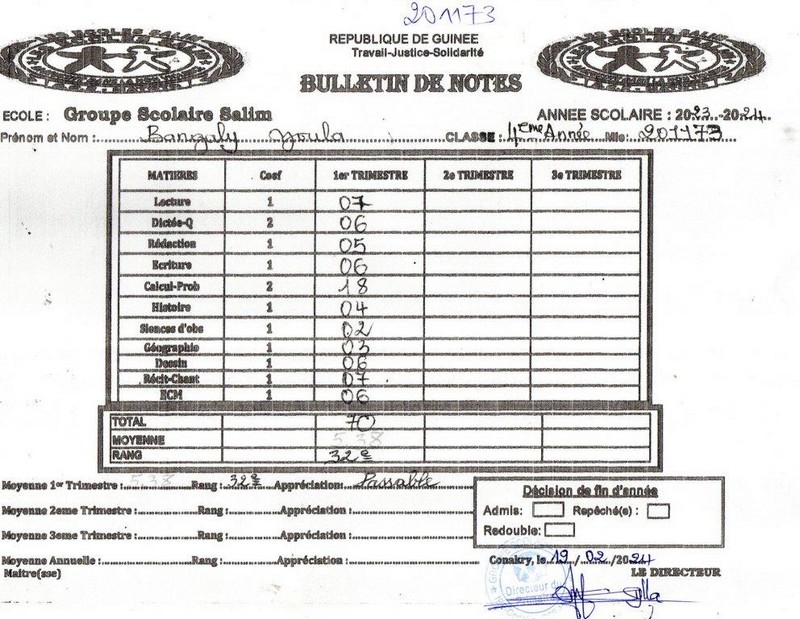 201173
REPUBLIQUE DE GUINEE
Travail-Justice-Solidarité
BULLETIN DE NOTES
ECOLE : Groupe Scolaire Salim ANNEE SCOLAIRE : 2023-2024
Prénom et Nom : Bangaly CLASSE : 4eme Année Mle: 201173
MATIERES Coef 1er TRIMESTRE 2e TRIMESTRE 3e TRIMESTRE
Lecture 1 07
Dictée-Q 2 06
Rédaction 1 05
Ecriture 1 06
Calcul-Prob 2 18
Histoire 1 04
Siences d'obs 1 02
Géographie 1 03
Dessin 1 06
Récit-Chant 1 07
ECM 1 06
TOTAL 70
MOYENNE 5.38
RANG 32e
Moyenne 1er Trimestre : 5.38 Rang : 32e Appréciation: Passable
Moyenne 2eme Trimestre : Rang : Appréciation :
Moyenne 3seme Trimestre : Rang : Appréciation :
Moyenne Annuelle : Rang : Appréciation :
Maitre(sse)
Décision de fin d'année
Admis: Repêché(e) :
Redouble:
Conakry, le 19/02/2024
LE DIRECTEUR
Directeur du